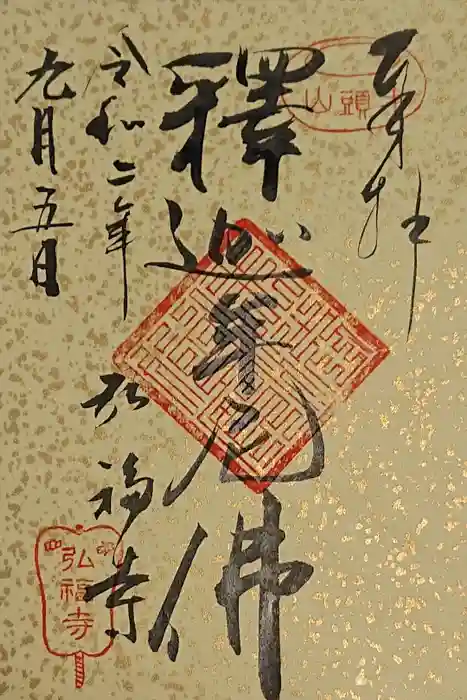 奉拝
釋迦牟尼佛
弘福寺
令和二年
九月五日
山頭
弘福寺